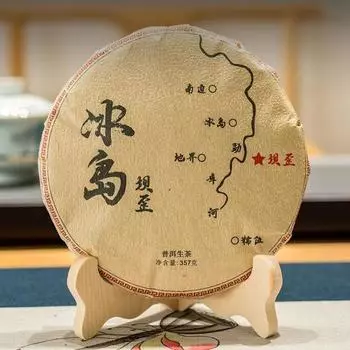 冰岛
坝歪
南迫
冰岛
地界
勐库河
坝歪
糯伍
普洱生茶
净含量:357克